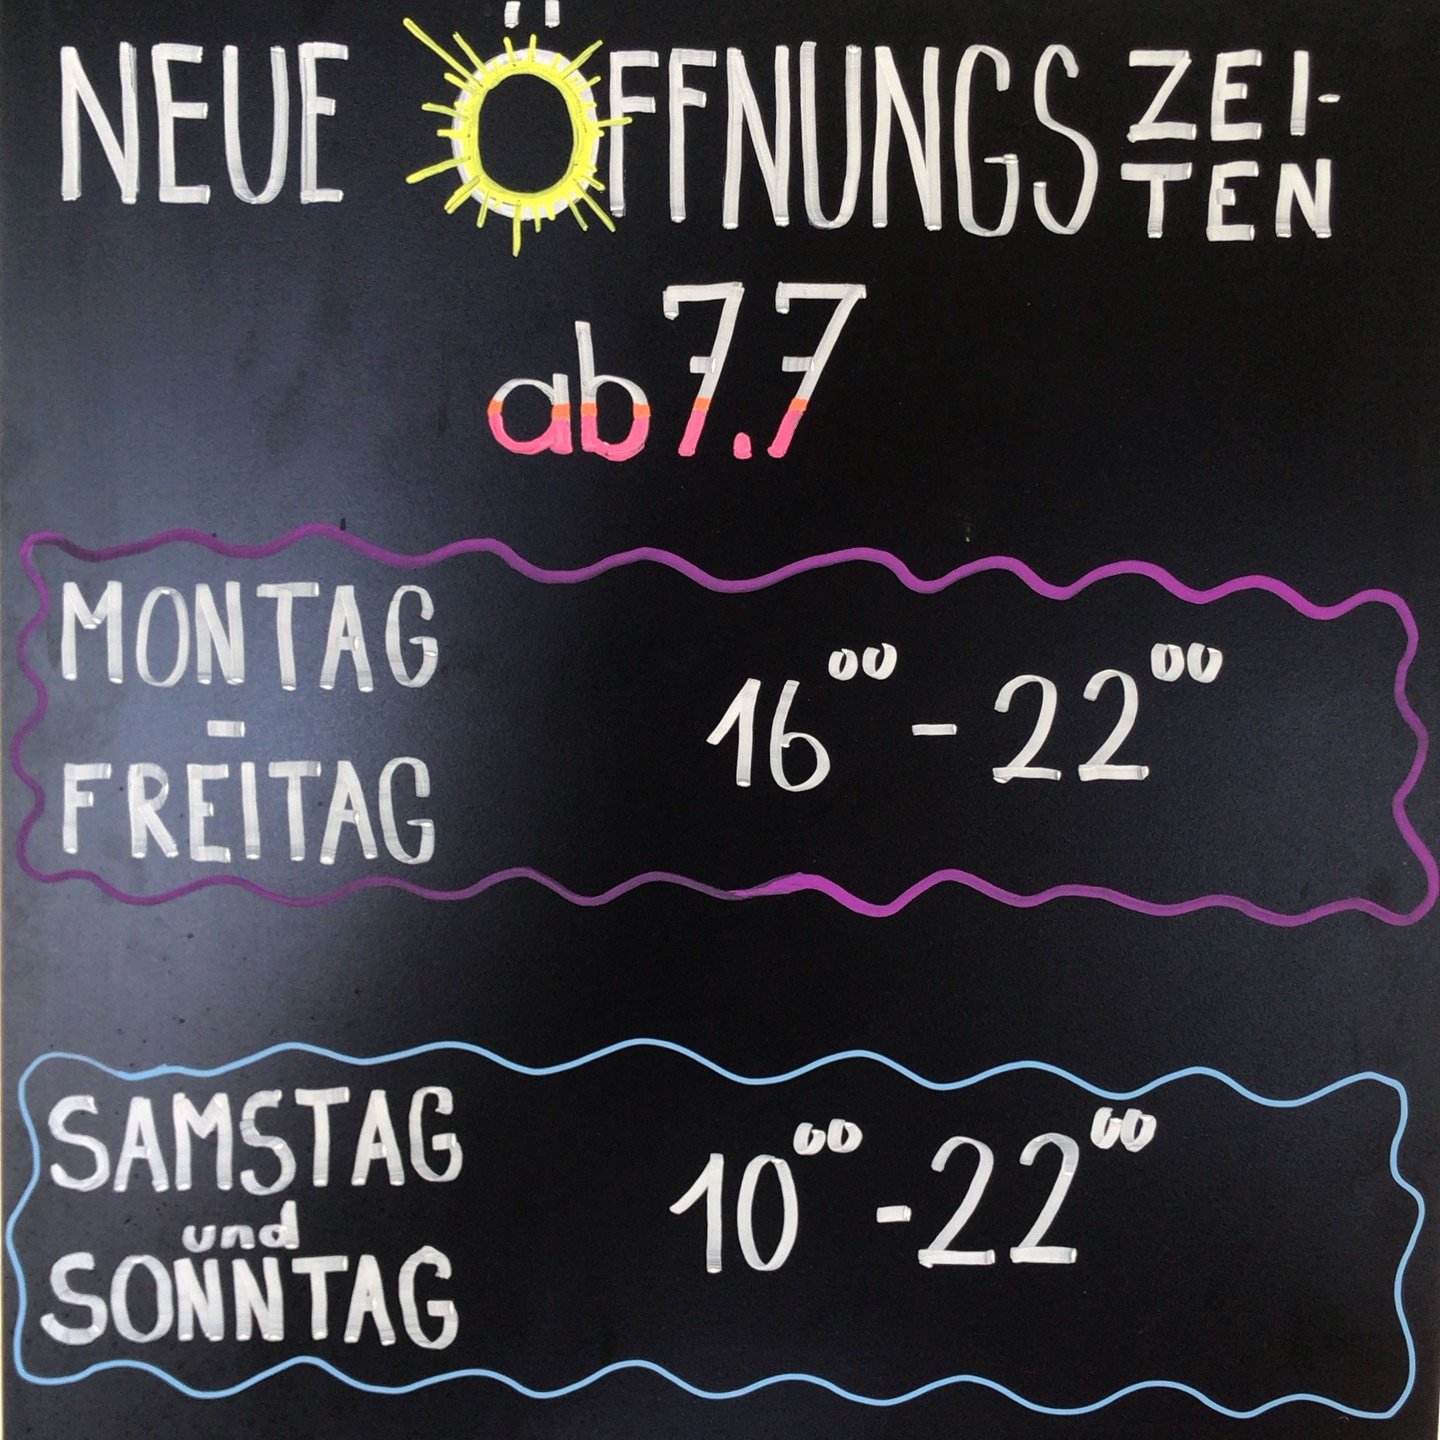 NEUE ÖFFNUNGSZEI-
TEN
ab 7.7
MONTAG
-
FREITAG
16⁰⁰ - 22⁰⁰
SAMSTAG
und
SONNTAG
10⁰⁰ - 22⁰⁰